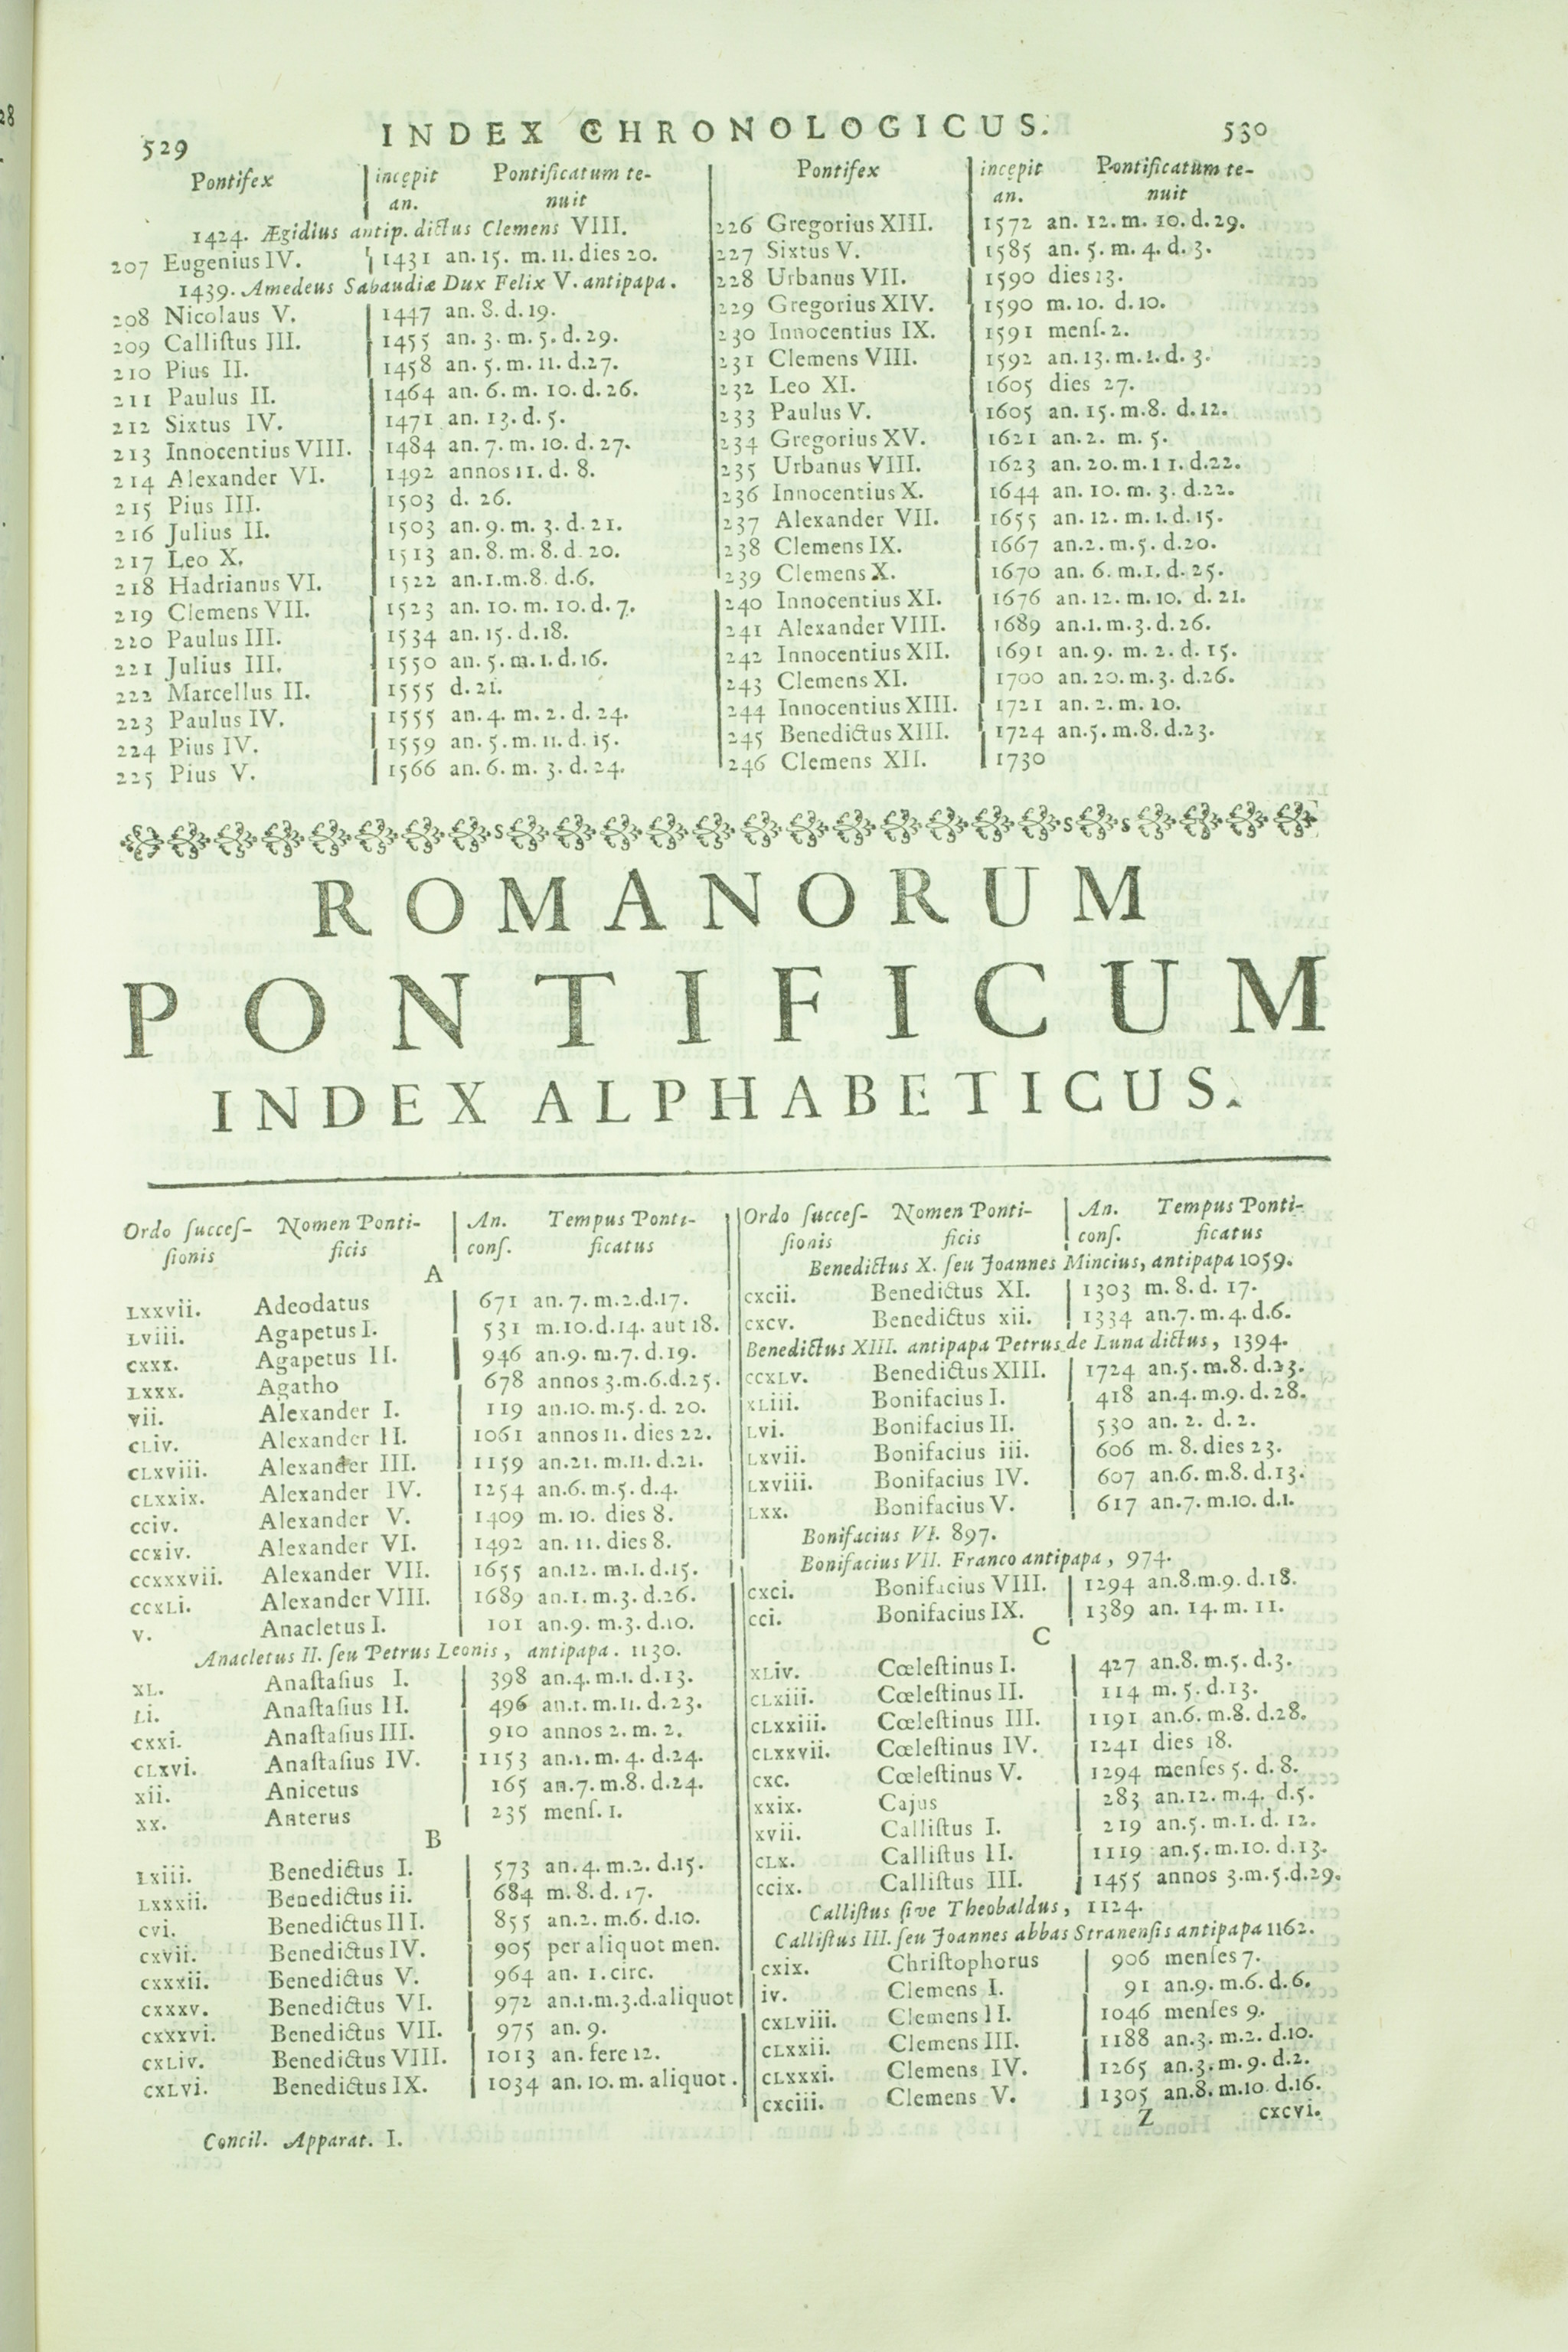 529
INDEX CHRONOLOGICUS.
530
Pontifex incepit Pontificatum te-
an. nuit
1424. Ægidius antip. dictus Clemens VIII.
207 Eugenius IV. 1431 an. 15. m. 11. dies 20.
1439. Amedeus Sabaudiæ Dux Felix V. antipapa.
208 Nicolaus V. 1447 an. 8. d. 19.
209 Calliſtus III. 1455 an. 3. m. 5. d. 29.
210 Pius II. 1458 an. 5. m. 11. d. 27.
211 Paulus II. 1464 an. 6. m. 10. d. 26.
212 Sixtus IV. 1471 an. 13. d. 5.
213 Innocentius VIII. 1484 an. 7. m. 10. d. 27.
214 Alexander VI. 1492 annos 11. d. 8.
215 Pius III. 1503 d. 26.
216 Julius II. 1503 an. 9. m. 3. d. 21.
217 Leo X. 1513 an. 8. m. 8. d. 20.
218 Hadrianus VI. 1522 an. 1. m. 8. d. 6.
219 Clemens VII. 1523 an. 10. m. 10. d. 7.
220 Paulus III. 1534 an. 15. d. 18.
221 Julius III. 1550 an. 5. m. 1. d. 16.
222 Marcellus II. 1555 d. 21.
223 Paulus IV. 1555 an. 4. m. 2. d. 24.
224 Pius IV. 1559 an. 5. m. 11. d. 15.
225 Pius V. 1566 an. 6. m. 3. d. 24.
Pontifex incepit Pontificatum te-
an. nuit
226 Gregorius XIII. 1572 an. 12. m. 10. d. 29.
227 Sixtus V. 1585 an. 5. m. 4. d. 3.
228 Urbanus VII. 1590 dies 13.
229 Gregorius XIV. 1590 m. 10. d. 10.
230 Innocentius IX. 1591 menſ. 2.
231 Clemens VIII. 1592 an. 13. m. 1. d. 3.
232 Leo XI. 1605 dies 27.
233 Paulus V. 1605 an. 15. m. 8. d. 12.
234 Gregorius XV. 1621 an. 2. m. 5.
235 Urbanus VIII. 1623 an. 20. m. 11. d. 22.
236 Innocentius X. 1644 an. 10. m. 3. d. 22.
237 Alexander VII. 1655 an. 12. m. 1. d. 15.
238 Clemens IX. 1667 an. 2. m. 5. d. 20.
239 Clemens X. 1670 an. 6. m. 1. d. 25.
240 Innocentius XI. 1676 an. 12. m. 10. d. 21.
241 Alexander VIII. 1689 an. 1. m. 3. d. 26.
242 Innocentius XII. 1691 an. 9. m. 2. d. 15.
243 Clemens XI. 1700 an. 20. m. 3. d. 26.
244 Innocentius XIII. 1721 an. 2. m. 10.
245 Benedictus XIII. 1724 an. 5. m. 8. d. 23.
246 Clemens XII. 1730
ROMANORUM
PONTIFICUM
INDEX ALPHABETICUS.
Ordo ſucceſ- Nomen Ponti- An. Tempus Ponti-
ſionis ficis conſ. ficatus
A
Lxxvii. Adeodatus 671 an. 7. m. 2. d. 17.
Lviii. Agapetus I. 531 m. 10. d. 14. aut 18.
cxxx. Agapetus II. 946 an. 9. m. 7. d. 19.
Lxxx. Agatho 678 annos 3. m. 6. d. 25.
vii. Alexander I. 119 an. 10. m. 5. d. 20.
cLiv. Alexander II. 1061 annos 11. dies 22.
cLxviii. Alexander III. 1159 an. 21. m. 11. d. 21.
cLxxix. Alexander IV. 1254 an. 6. m. 5. d. 4.
cciv. Alexander V. 1409 m. 10. dies 8.
ccxiv. Alexander VI. 1492 an. 11. dies 8.
ccxxxvii. Alexander VII. 1655 an. 12. m. 1. d. 15.
ccxLi. Alexander VIII. 1689 an. 1. m. 3. d. 26.
v. Anacletus I. 101 an. 9. m. 3. d. 10.
Anacletus II. ſeu Petrus Leonis, antipapa. 1130.
xL. Anaſtaſius I. 398 an. 4. m. 1. d. 13.
Li. Anaſtaſius II. 496 an. 1. m. 11. d. 23.
cxxi. Anaſtaſius III. 910 annos 2. m. 2.
cLxvi. Anaſtaſius IV. 1153 an. 1. m. 4. d. 24.
xii. Anicetus 165 an. 7. m. 8. d. 24.
xx. Anterus 235 menſ. 1.
B
Lxiii. Benedictus I. 573 an. 4. m. 2. d. 15.
Lxxxii. Benedictus ii. 684 m. 8. d. 17.
cvi. Benedictus III. 855 an. 2. m. 6. d. 10.
cxvii. Benedictus IV. 905 per aliquot men.
cxxxii. Benedictus V. 964 an. 1. circ.
cxxxv. Benedictus VI. 972 an. 1. m. 3. d. aliquot
cxxxvi. Benedictus VII. 975 an. 9.
cxLiv. Benedictus VIII. 1013 an. fere 12.
cxLvi. Benedictus IX. 1034 an. 10. m. aliquot.
Ordo ſucceſ- Nomen Ponti- An. Tempus Ponti-
ſionis ficis conſ. ficatus
Benedictus X. ſeu Joannes Mincius, antipapa 1059.
cxcii. Benedictus XI. 1303 m. 8. d. 17.
cxcv. Benedictus xii. 1334 an. 7. m. 4. d. 6.
Benedictus XIII. antipapa Petrus de Luna dictus, 1394.
ccxLv. Benedictus XIII. 1724 an. 5. m. 8. d. 23.
xLiii. Bonifacius I. 418 an. 4. m. 9. d. 28.
Lvi. Bonifacius II. 530 an. 2. d. 2.
Lxvii. Bonifacius iii. 606 m. 8. dies 23.
Lxviii. Bonifacius IV. 607 an. 6. m. 8. d. 13.
Lxx. Bonifacius V. 617 an. 7. m. 10. d. 1.
Bonifacius VI. 897.
Bonifacius VII. Franco antipapa, 974.
cxci. Bonifacius VIII. 1294 an. 8. m. 9. d. 18.
cci. Bonifacius IX. 1389 an. 14. m. 11.
C
xLiv. Cœleſtinus I. 427 an. 8. m. 5. d. 3.
cLxiii. Cœleſtinus II. 114 m. 5. d. 13.
cLxxiii. Cœleſtinus III. 1191 an. 6. m. 8. d. 28.
cLxxvii. Cœleſtinus IV. 1241 dies 18.
cxc. Cœleſtinus V. 1294 menſes 5. d. 8.
xxix. Cajus 283 an. 12. m. 4. d. 5.
xvii. Calliſtus I. 219 an. 5. m. 1. d. 12.
cLx. Calliſtus II. 1119 an. 5. m. 10. d. 13.
ccix. Calliſtus III. 1455 annos 3. m. 5. d. 29.
Calliſtus ſive Theobaldus, 1124.
Calliſtus III. ſeu Joannes abbas Stranenſis antipapa 1162.
cxix. Chriſtophorus 906 menſes 7.
iv. Clemens I. 91 an. 9. m. 6. d. 6.
cxLviii. Clemens II. 1046 menſes 9.
cLxxii. Clemens III. 1188 an. 3. m. 2. d. 10.
cLxxxi. Clemens IV. 1265 an. 3. m. 9. d. 2.
cxciii. Clemens V. 1305 an. 8. m. 10 d. 16.
Concil. Apparat. I.
Z cxcvi.